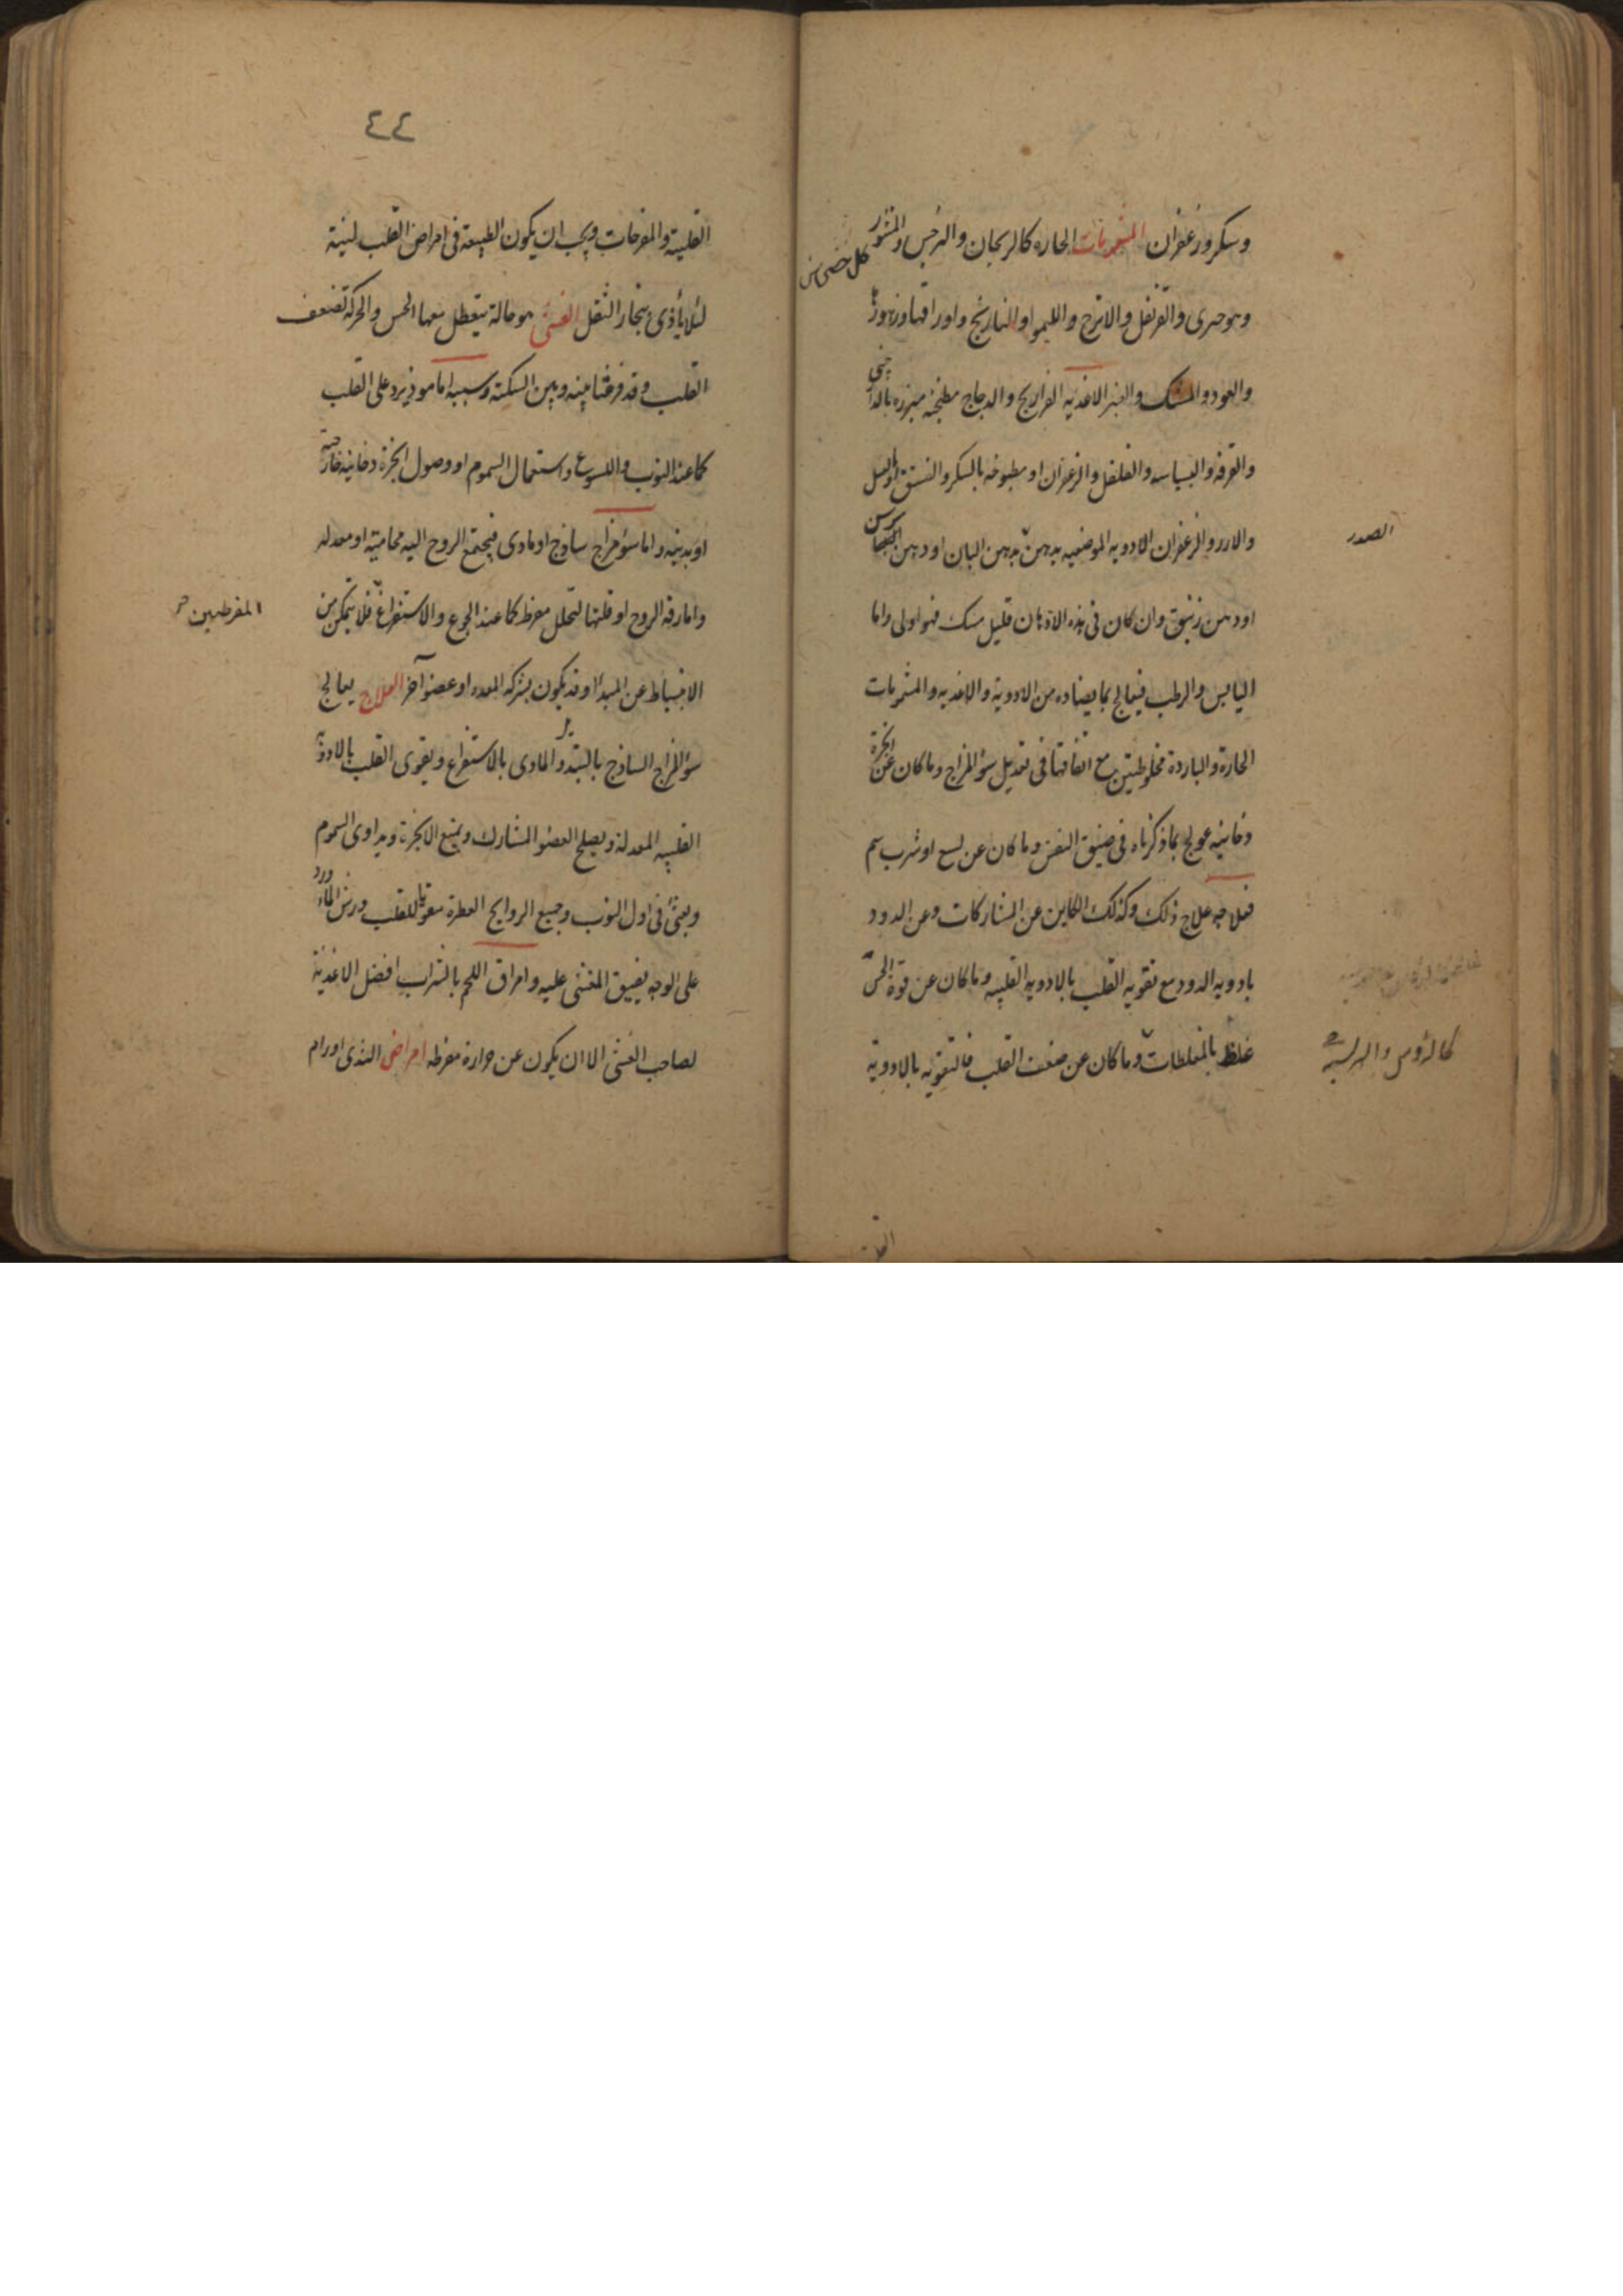 وسكر وزعفران المشمومات الحاره كالريحان والنرجس والمنثور
وهو حرى والقرنفل والاترج والليمو او النارنج واوراقها وزهورها
والعود والمسك والعنبر الاغذيه الفراريج والدجاج مطبخة مبزره بالدارچينى
والقرفه والبسباسه والفلفل والزعفران او مطبوخه بالسكر والفستق او العسل
والارز والزعفران الادويه الموضعيه يدهن بدهن البان او دهن
الصدر
اودهن زنبق وان كان فى هذه الادهان قليل مسك فهو اولى واما
اليابس والرطب فيعالج بما يضاده من الادوية والاغذيه والمشمومات
الحارة والباردة مخلوطتين مع اتفاقها فى تعديل سؤ المزاج وما كان عن ابخرة
دخانيه عولج بما ذكرناه فى ضيق النفس وما كان عن لسع او شرب سم
فعلاجه علاج ذلك وكذلك الكاين عن المشاركات وعن الدود
بادويه الدود مع تقويه القلب بالادويه القلبيه وما كان عن قوة الحس
غلظ بالمغلظات وما كان عن ضعف القلب فالتقويه بالادوية
كالرؤس والهريسة
٤٤
القلبية والمفرحات ويجب ان يكون الطبيعة فى امراض القلب لينة
لئلا يأذى ببخار الثقل الغشى هو حالة يتعطل معها الحس والحركة لضعف
القلب وقد فرغنا بينه وبين السكتة وسببه اما موذ يرد على القلب
كما عند النوب واللسوع واستعمال السموم او وصول ابخرة دخانيه خارجية
او بدينه واما سؤ مزاج ساذج او مادى فيجتمع الروح اليه محامية او معدله
واما رقه الروح او قلتها لتحلل مفرط كما عند الجوع والاستفراغ فلا يتمكن من
المفرطين
الانبساط عن المبدأ وقد يكون بشركه المعده او عضو آخر العلاج يعالج
سؤ المزاج الساذج بالتبديل والمادى بالاستفراغ ويقوى القلب بالادوية
القلبيه المعدلة ويصلح العضو المشارك ويمنع الابخرة ويداوى السموم
ويقئ فى اول النوب وجميع الروايح العطرة مقويا للقلب ورش الماء ورد
على الوجه يفيق المغشى عليه وامراق اللحم بالشراب افضل الاغذية
لصاحب الغشى الا ان يكون عن حرارة مفرطه امراض الثدى اورام